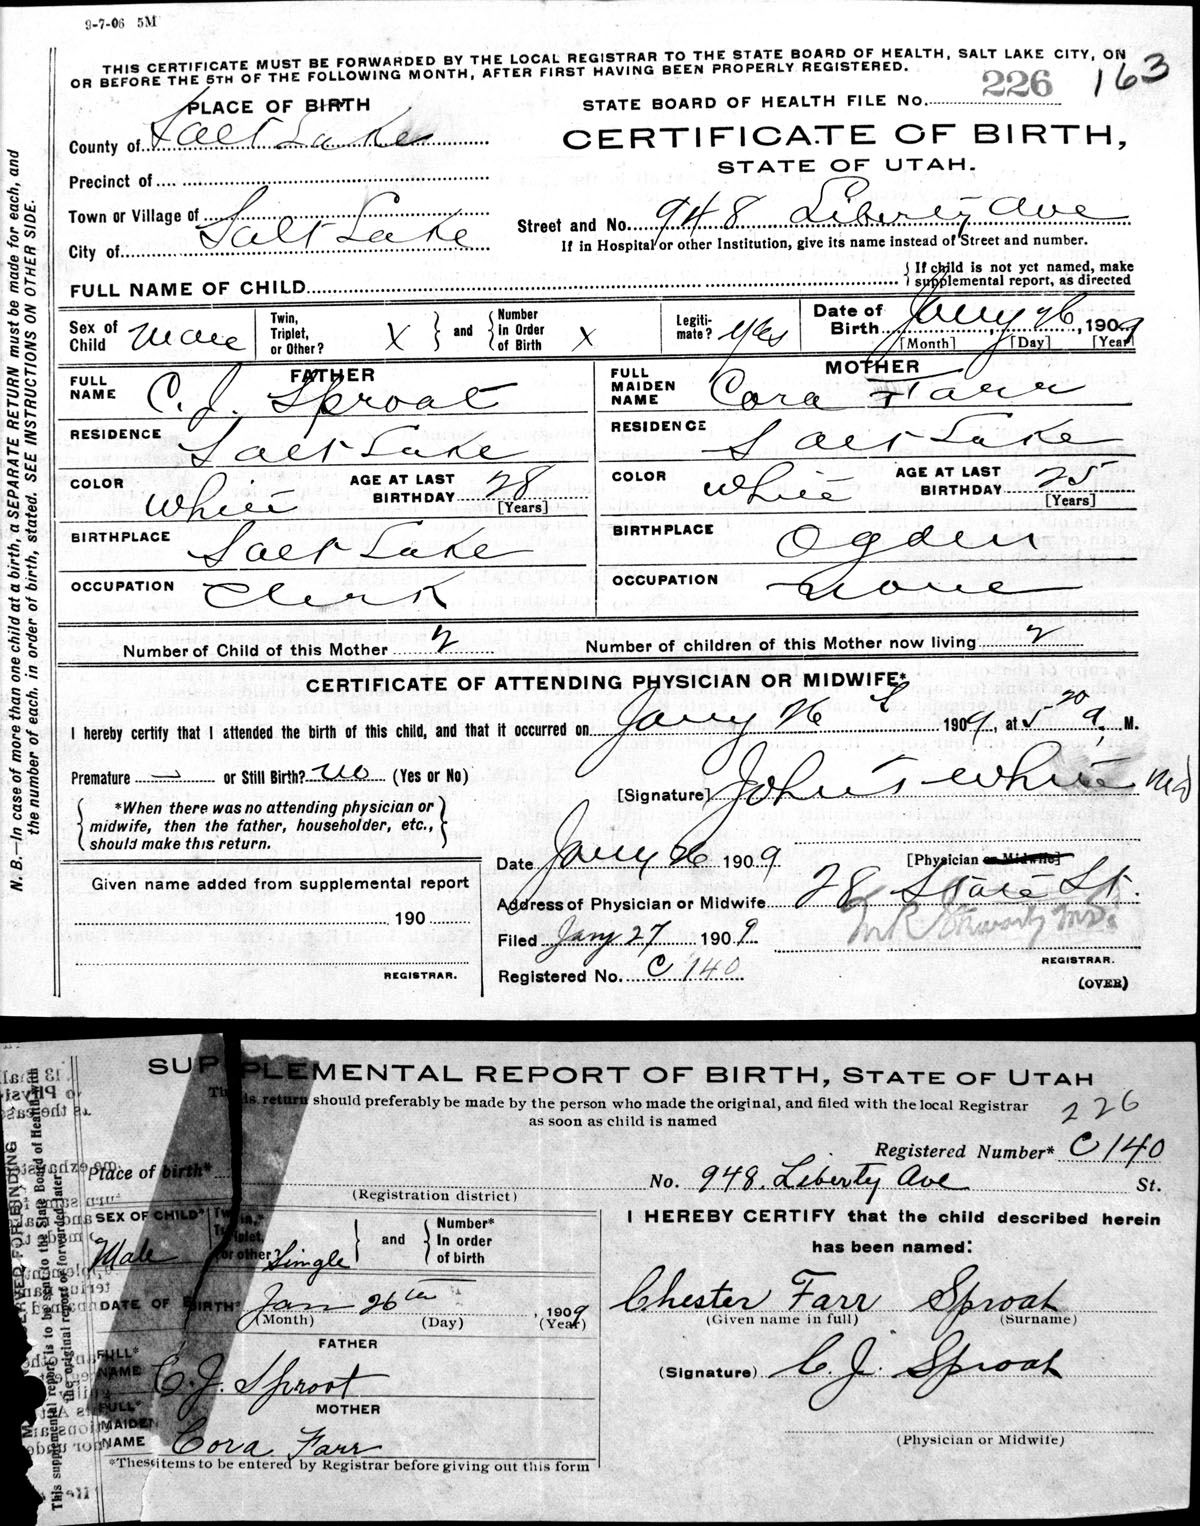 9-7-06 5M
THIS CERTIFICATE MUST BE FORWARDED BY THE LOCAL REGISTRAR TO THE STATE BOARD OF HEALTH, SALT LAKE CITY, ON
OR BEFORE THE 5TH OF THE FOLLOWING MONTH, AFTER FIRST HAVING BEEN PROPERLY REGISTERED.
163
PLACE OF BIRTH
STATE BOARD OF HEALTH FILE No. 226
County of Salt Lake
CERTIFICATE OF BIRTH,
STATE OF UTAH.
Precinct of
Town or Village of
Street and No. 948 Liberty Ave
City of Salt Lake
If in Hospital or other Institution, give its name instead of Street and number.
FULL NAME OF CHILD
If child is not yet named, make
supplemental report, as directed
Sex of Child Male
Twin, Triplet, or Other? X
and
Number in Order of Birth X
Legiti-mate? Yes
Date of Birth Jany 26, 1909
[Month] [Day] [Year]
FATHER
FULL NAME C. J. Sproat
RESIDENCE Salt Lake
COLOR White
AGE AT LAST BIRTHDAY 28
[Years]
BIRTHPLACE Salt Lake
OCCUPATION Clerk
MOTHER
FULL MAIDEN NAME Cora Farr
RESIDENCE Salt Lake
COLOR White
AGE AT LAST BIRTHDAY 25
[Years]
BIRTHPLACE Ogden
OCCUPATION None
Number of Child of this Mother 2
Number of children of this Mother now living 2
CERTIFICATE OF ATTENDING PHYSICIAN OR MIDWIFE*
I hereby certify that I attended the birth of this child, and that it occurred on Jany 26 1909, at 5 20 a. M.
Premature — or Still Birth? no (Yes or No)
[Signature] John S White MD
*When there was no attending physician or
midwife, then the father, householder, etc.,
should make this return.
Date Jany 26 1909
[Physician or Midwife]
Address of Physician or Midwife 28 State St.
Given name added from supplemental report
190
REGISTRAR.
Filed Jany 27 1909
M.D.
REGISTRAR.
Registered No. C 140
(OVER)
N. B.—In case of more than one child at a birth, a SEPARATE RETURN must be made for each, and
the number of each. in order of birth, stated. SEE INSTRUCTIONS ON OTHER SIDE.
SUPPLEMENTAL REPORT OF BIRTH, STATE OF UTAH
This return should preferably be made by the person who made the original, and filed with the local Registrar
as soon as child is named
226
Registered Number* C 140
Place of birth*
(Registration district)
No. 948. Liberty Ave St.
SEX OF CHILD* Male
Twin,* Triplet, or other? Single
and
Number* In order of birth
DATE OF BIRTH* Jan 26th, 1909
(Month) (Day) (Year)
FATHER
FULL* NAME C. J. Sproat
MOTHER
FULL* MAIDEN NAME Cora Farr
*These items to be entered by Registrar before giving out this form
I HEREBY CERTIFY that the child described herein
has been named:
Chester Farr Sproat
(Given name in full) (Surname)
(Signature) C. J. Sproat
(Physician or Midwife)
RESERVED FOR BINDING
This supplemental report is to be sent to the State Board of Health with
the original report or forwarded later